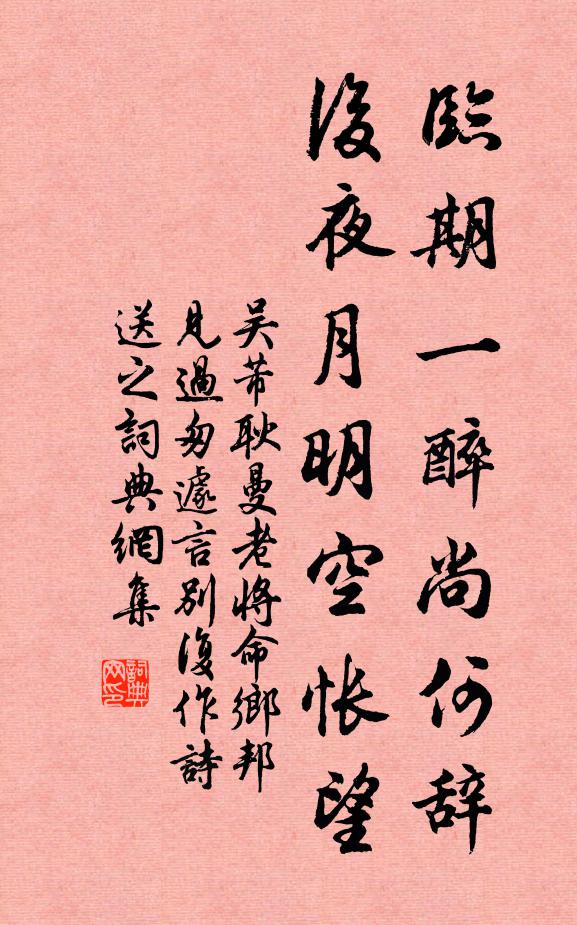 臨期一醉尚何辞
後夜月明空怅望
吴芾耿曼老将命鄉邦
見過匆遽言别復作詩
送之詞典網集
詞典网印